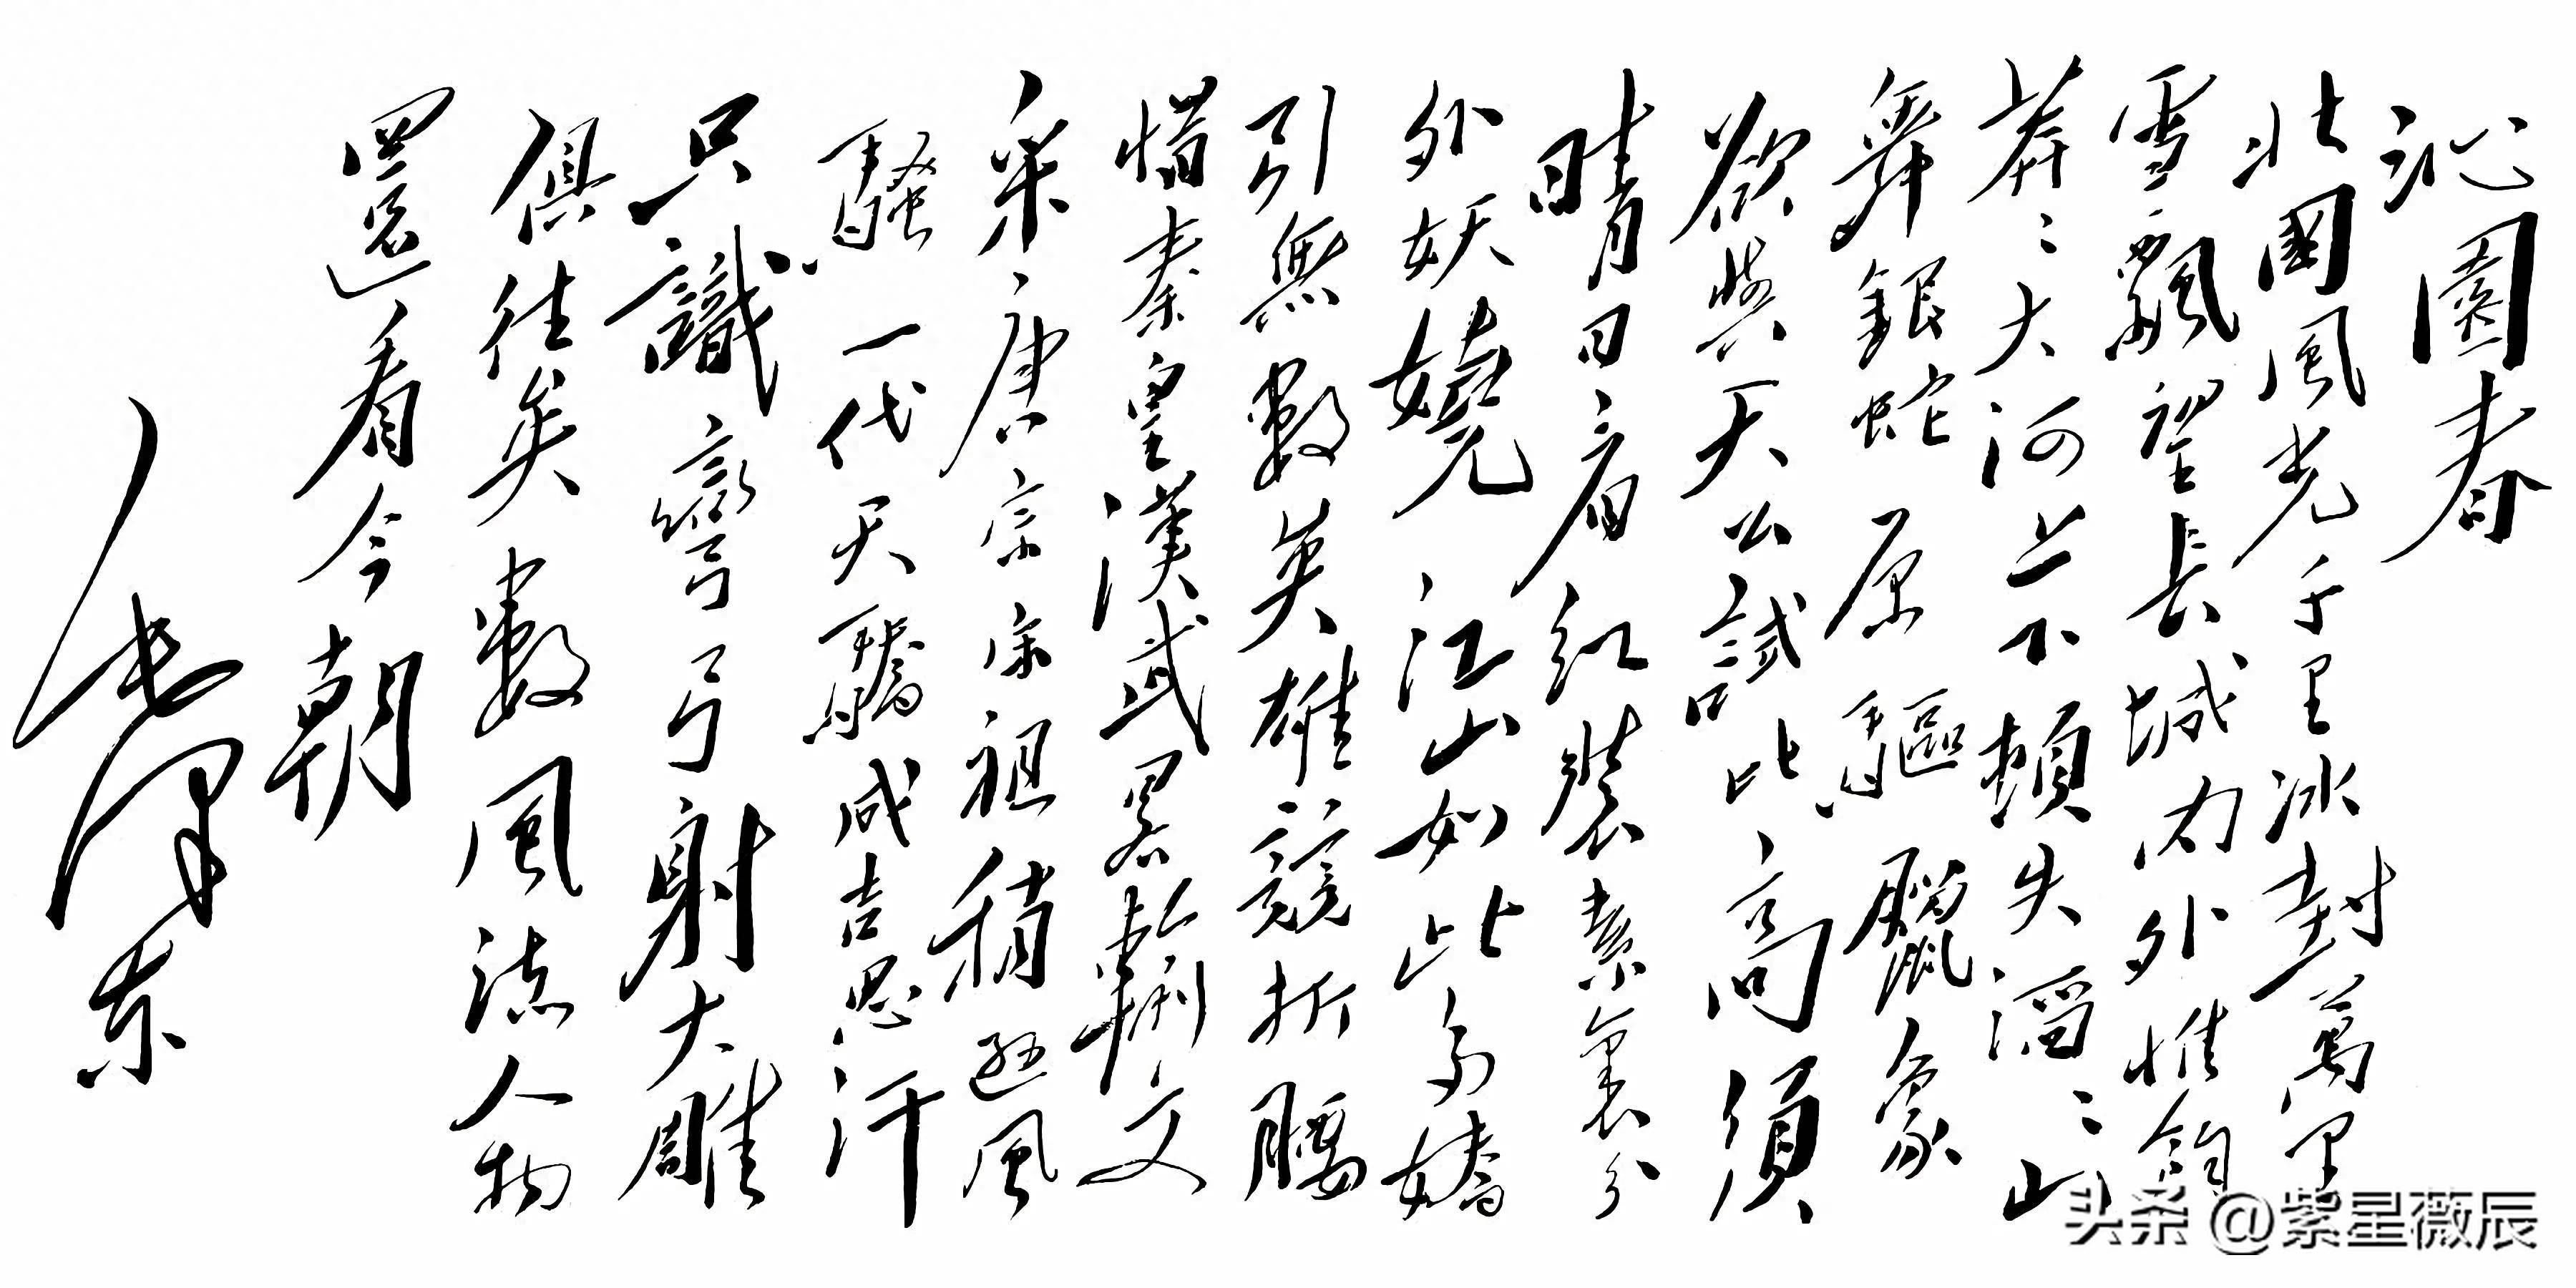 沁園春
北國風光千里冰封萬里
雪飄望長城内外惟餘
莽〻大河上下頓失滔〻山
舞銀蛇原驅臘象
欲與天公試比高須
晴日看紅裝素裹分
外妖嬈江山如此多嬌
引無數英雄競折腰
惜秦皇漢武略輸文
采唐宗宋祖稍遜風
騷一代天驕成吉思汗
只識彎弓射大雕
俱往矣數風流人物
還看今朝
毛澤东
头条 @紫星薇辰